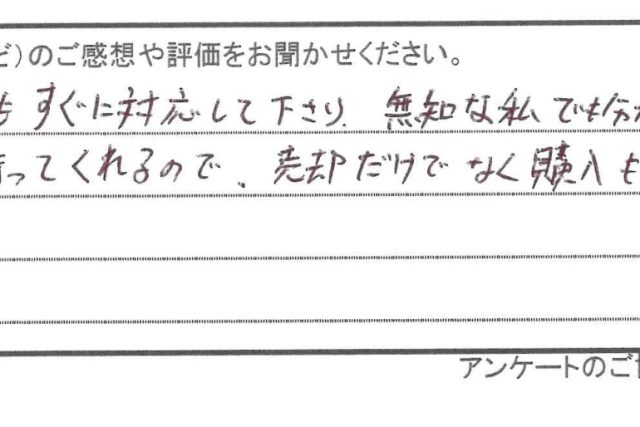 ど）のご感想や評価をお聞かせください。
もすぐに対応して下さり、無知な私でも分か
ってくれるので、売却だけでなく購入も
アンケートのご